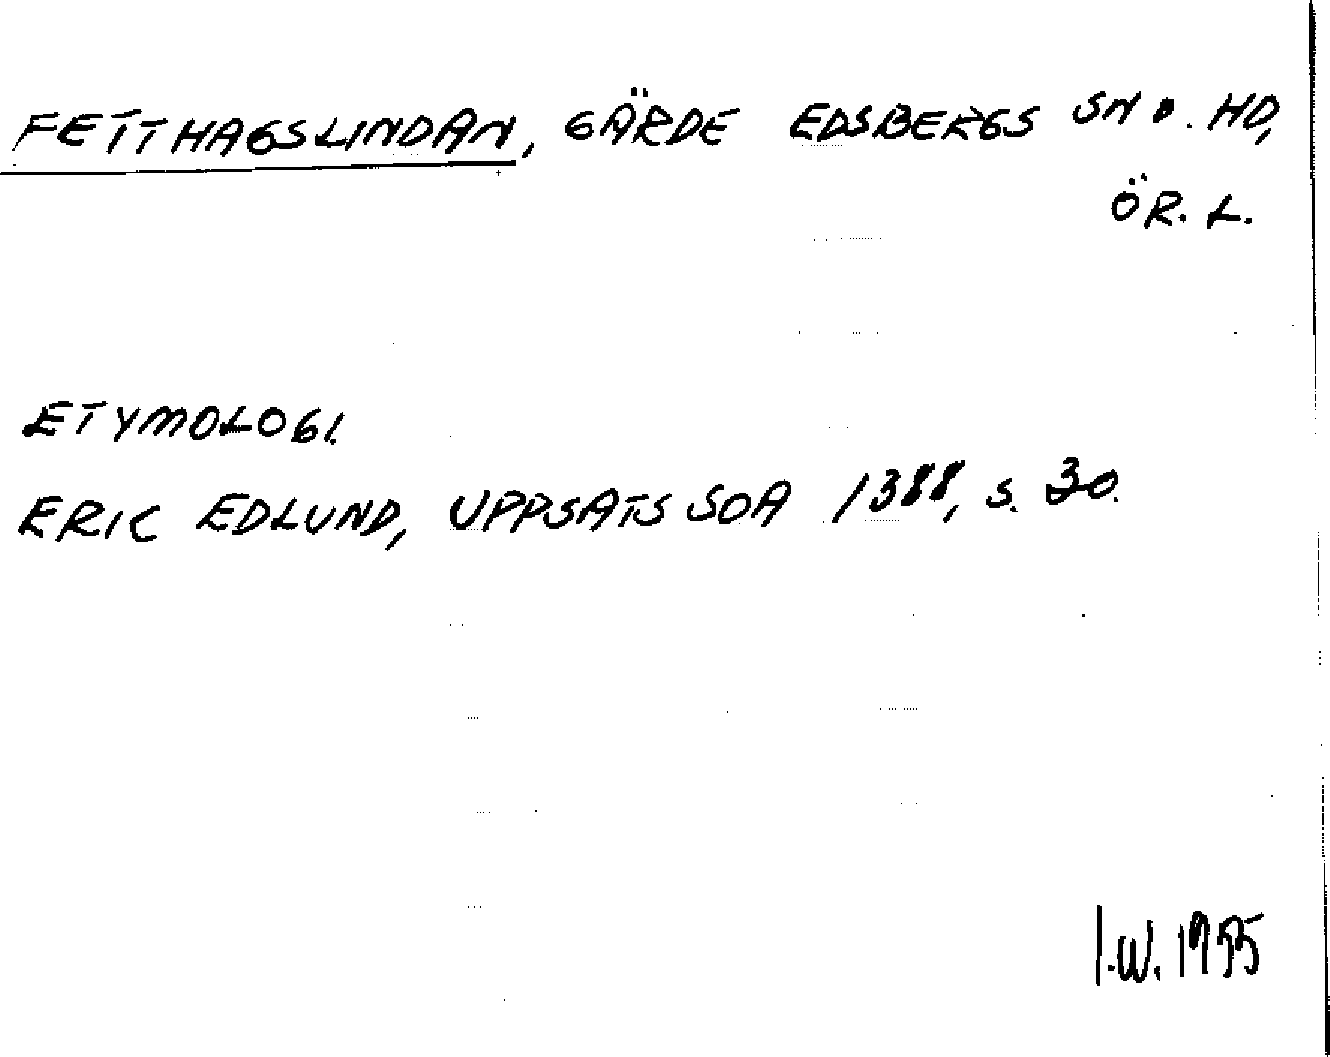 FETTHAGSLINDAN, GÄRDE EDSBERGS SN O. HD,
ÖR. L.
ETYMOLOGI.
ERIC EDLUND, UPPSATS SOA 1388, S. 30.
I.W. 1955